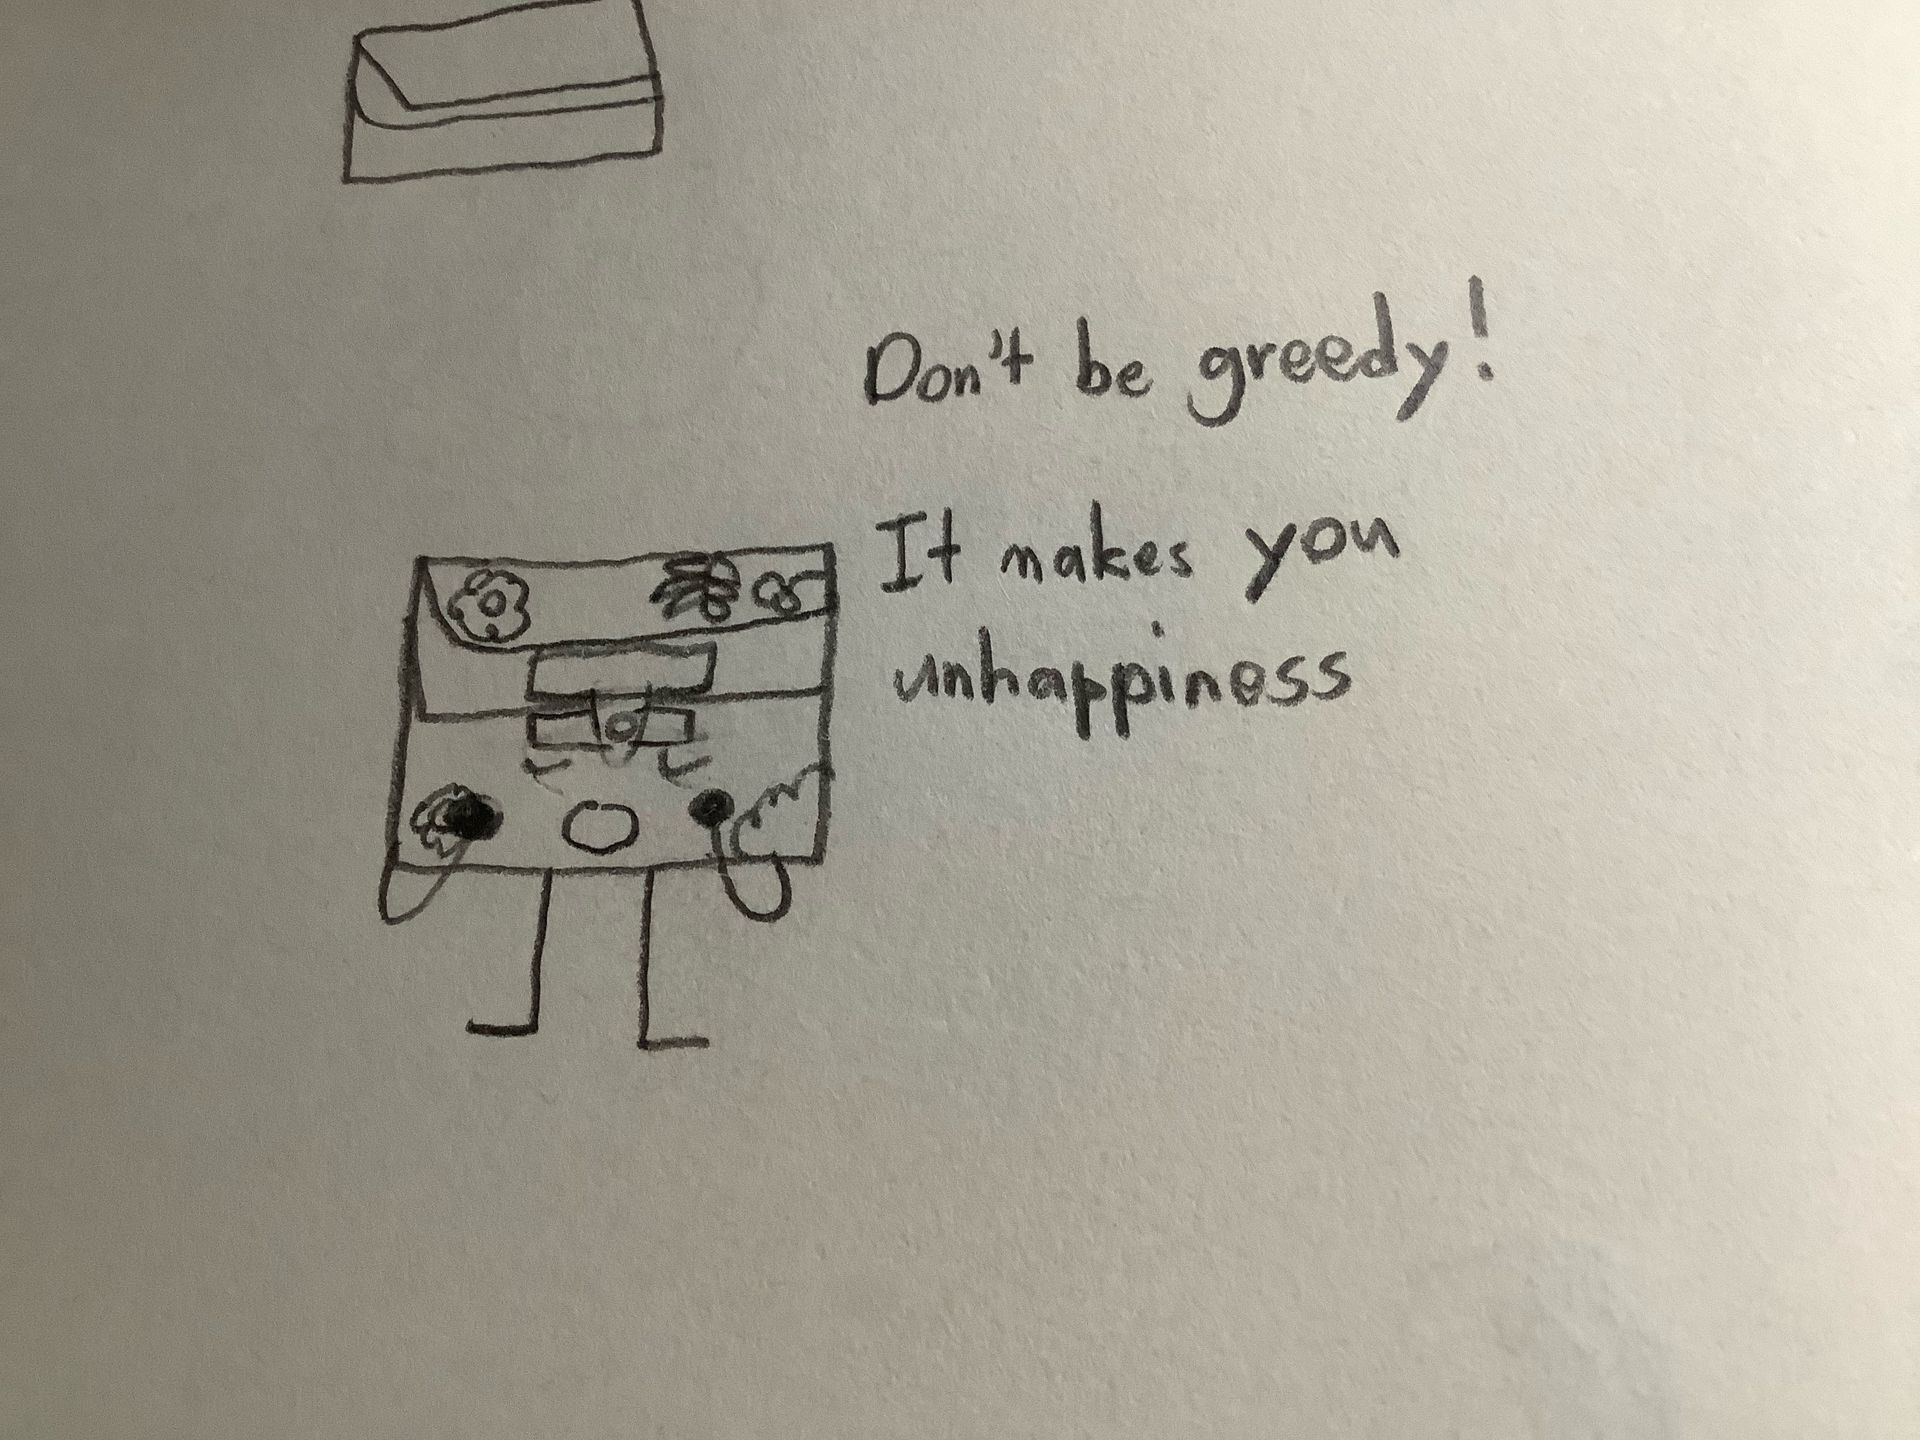 Don't be greedy!
It makes you
unhappiness